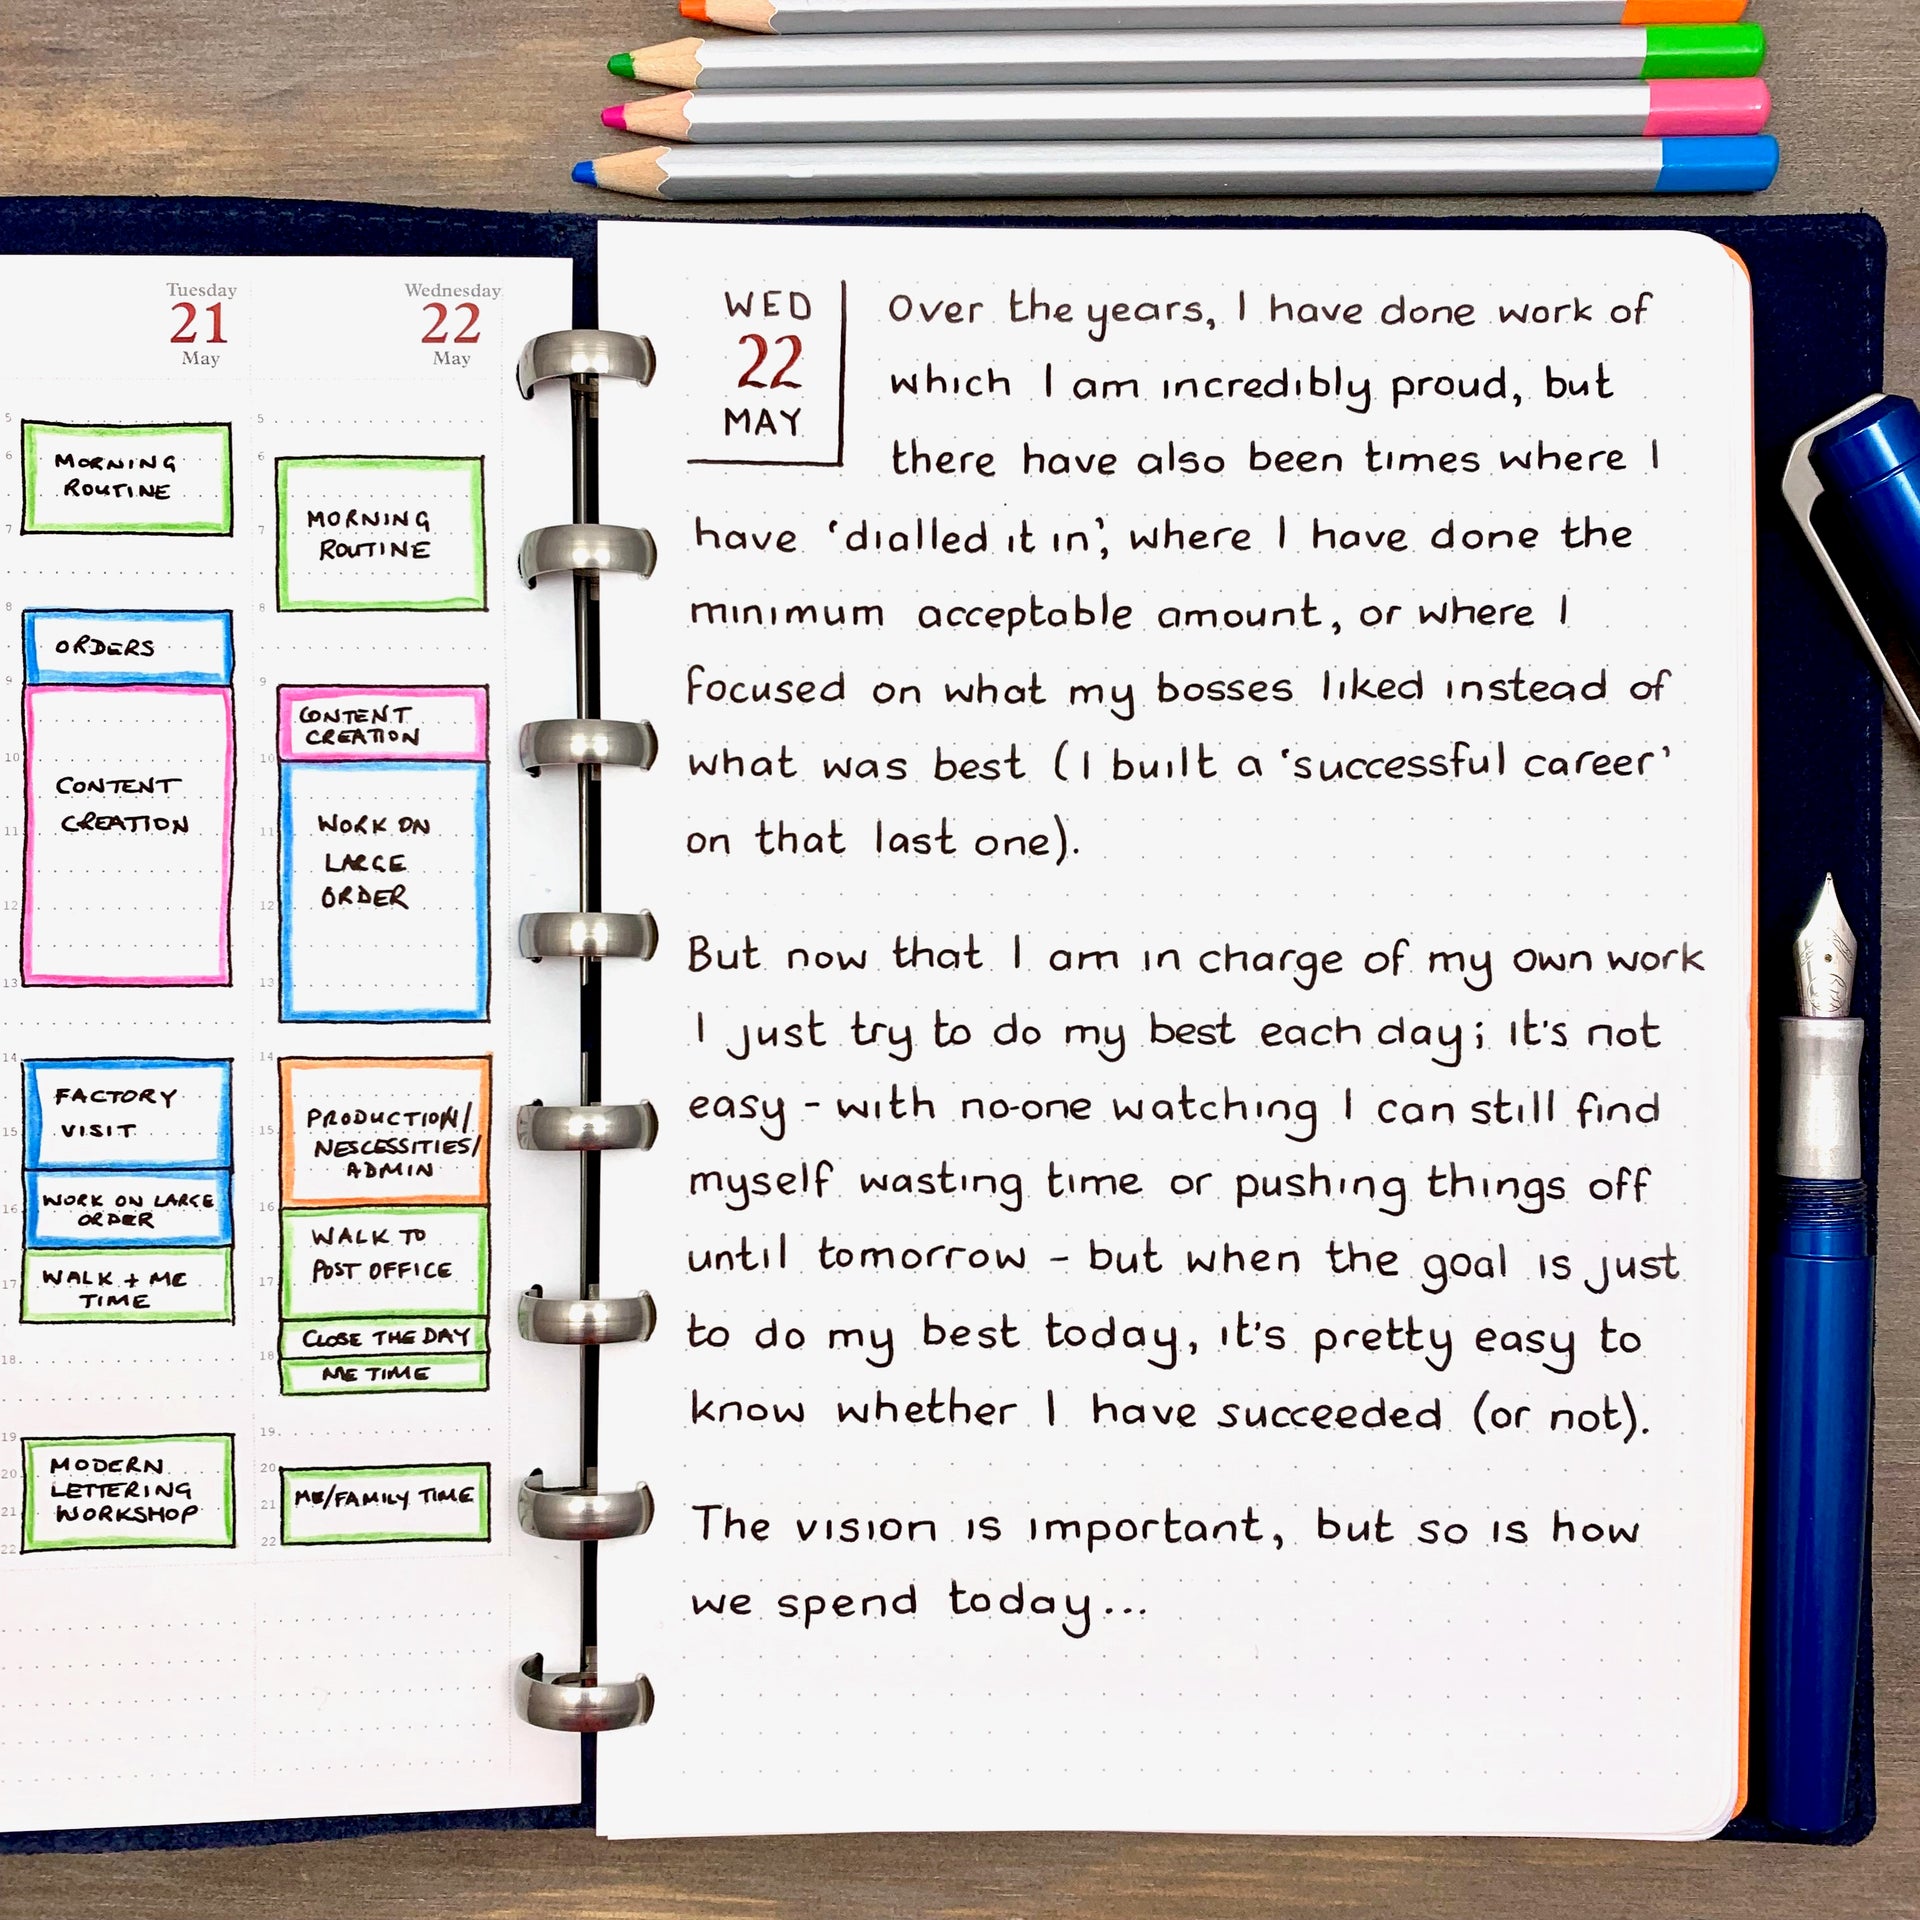 Tuesday
21
May
5
MORNING
ROUTINE
6
7
8
ORDERS
9
CONTENT
CREATION
10
11
12
13
14
FACTORY
VISIT
15
WORK ON LARGE
ORDER
16
WALK + ME
TIME
17
18
19
MODERN
LETTERING
WORKSHOP
20
21
22
Wednesday
22
May
5
6
MORNING
ROUTINE
7
8
9
CONTENT
CREATION
10
WORK ON
LARGE
ORDER
11
12
13
14
PRODUCTION/
NESCESSITIES/
ADMIN
15
16
WALK TO
POST OFFICE
17
CLOSE THE DAY
18
ME TIME
19
20
ME/FAMILY TIME
21
22
WED
22
MAY
Over the years, I have done work of
which I am incredibly proud, but
there have also been times where I
have ‘dialled it in’, where I have done the
minimum acceptable amount, or where I
focused on what my bosses liked instead of
what was best (I built a ‘successful career’
on that last one).
But now that I am in charge of my own work
I just try to do my best each day; it's not
easy - with no-one watching I can still find
myself wasting time or pushing things off
until tomorrow - but when the goal is just
to do my best today, it's pretty easy to
know whether I have succeeded (or not).
The vision is important, but so is how
we spend today...